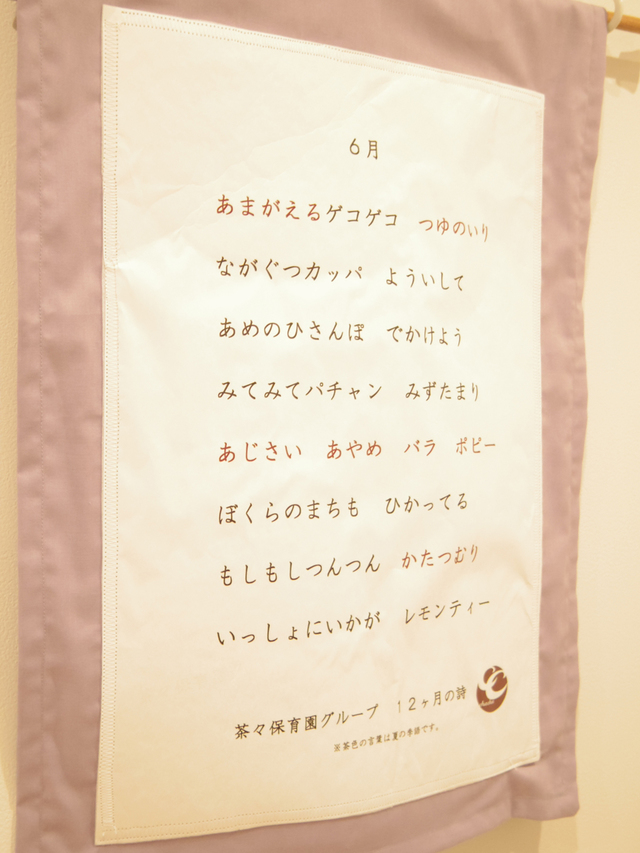 6月
あまがえるゲコゲコ　つゆのいり
ながぐつカッパ　よういして
あめのひさんぽ　でかけよう
みてみてパチャン　みずたまり
あじさい　あやめ　バラ　ポピー
ぼくらのまちも　ひかってる
もしもしつんつん　かたつむり
いっしょにいかが　レモンティー
茶々保育園グループ　１２ヶ月の詩
※茶色の言葉は夏の季語です。